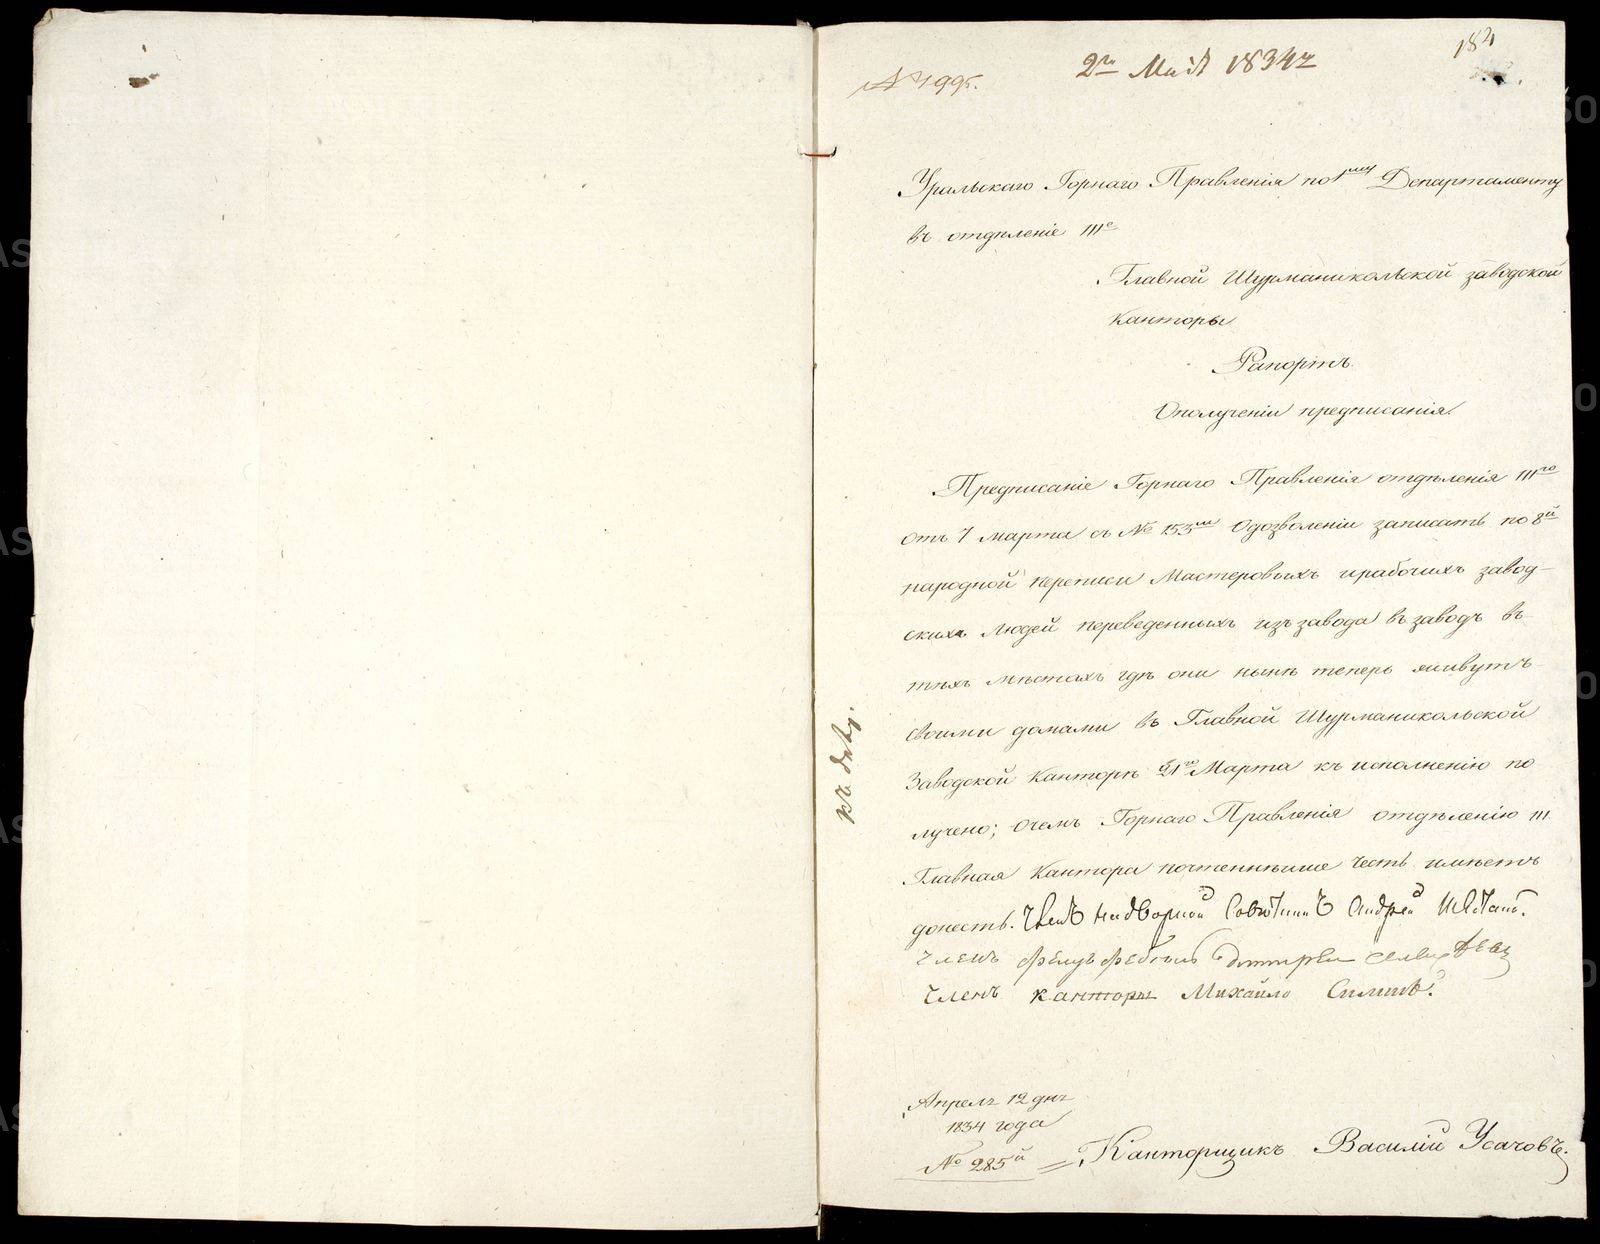 184
2го Маія 1834г
№ 1995.
Уральскаго Горнаго Правленія по 1му Департаменту
въ отдѣленіе III е
Главной Шурманикольской заводской
Канторы
Рапортъ
Ополученіи предписанія.
Предписаніе Горнаго Правленія отдѣленія III го
отъ 7 марта съ № 153 ш Одозволеніи записать по 8й
народной переписи Мастеровыхъ ирабочихъ завод-
скихъ людей переведенныхъ изъ завода въ заводъ въ
тѣхъ мѣстахъ гдѣ они нынѣ теперь живутъ
своими домами въ Главной Шурманикольской
Заводской Канторѣ 21го Марта къ исполненію по
лучено; очемъ Горнаго Правленія отдѣленію III
Главная Кантора почтеннѣише честь имѣетъ
донесть. Членъ надворной Советникъ Андрей
Членъ
Членъ канторы Михайло
къ дѣлу.
Апрель 12 дня
1834 года
№ 285й
Канторщикъ Василій Усачовъ.